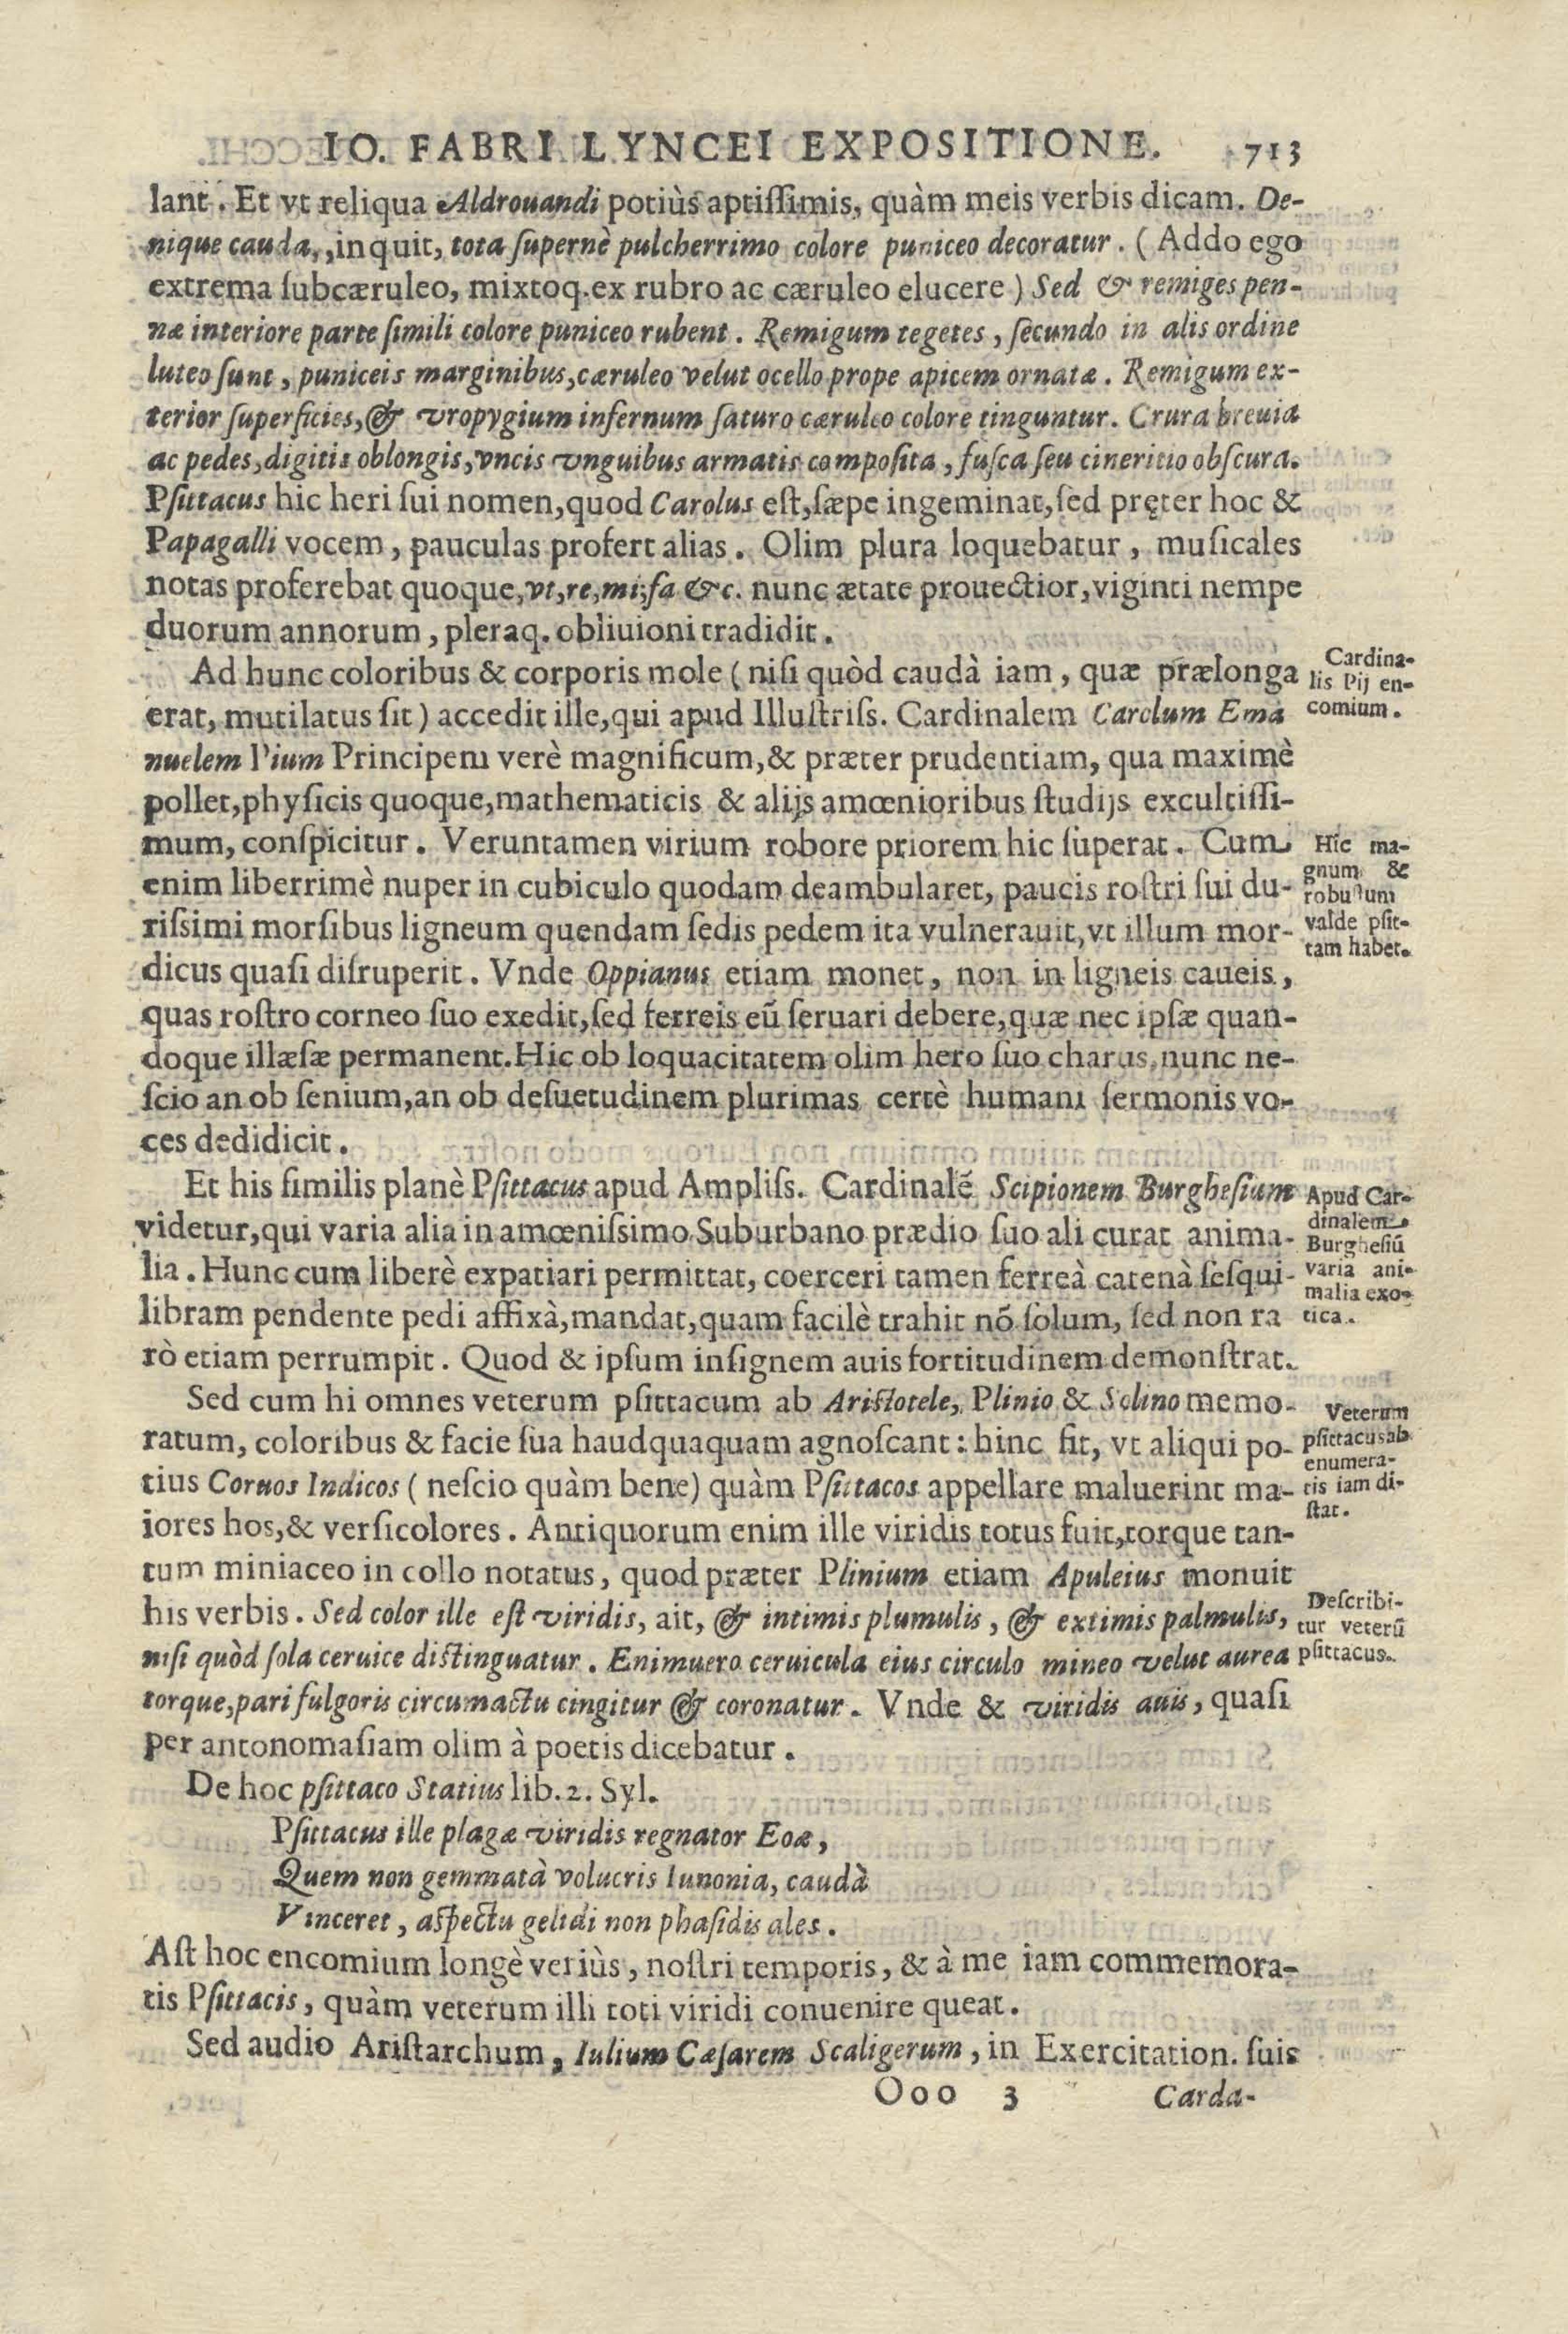 IO. FABRI LYNCEI EXPOSITIONE. 713
lant. Et vt reliqua Aldrouandi potiùs aptiſſimis, quàm meis verbis dicam. De-
nique cauda, inquit, tota ſupernè pulcherrimo colore puniceo decoratur. (Addo ego
extrema ſubcæruleo, mixtoq. ex rubro ac cæruleo elucere) Sed & remiges pen-
næ interiore parte ſimili colore puniceo rubent. Remigum tegetes, ſecundo in alis ordine
luteo ſunt, puniceis marginibus, cæruleo velut ocello prope apicem ornatæ. Remigum ex-
terior ſuperficies, & vropygium infernum ſaturo cæruleo colore tinguntur. Crura breuia
ac pedes, digitis oblongis, vncis vnguibus armatis compoſita, fuſca ſeu cineritio obſcura.
Pſittacus hic heri ſui nomen, quod Carolus eſt, ſæpe ingeminat, ſed pręter hoc &
Papagalli vocem, pauculas profert alias. Olim plura loquebatur, muſicales
notas proferebat quoque, vt, re, mi, fa &c. nunc ætate prouectior, viginti nempe
duorum annorum, pleraq. obliuioni tradidit.
Ad hunc coloribus & corporis mole (niſi quòd caudà iam, quæ prælonga
erat, mutilatus ſit) accedit ille, qui apud Illuſtriſs. Cardinalem Carolum Ema
nuelem Pium Principem verè magnificum, & præter prudentiam, qua maximè
pollet, phyſicis quoque, mathematicis & alijs amœnioribus ſtudijs excultiſſi-
mum, conſpicitur. Veruntamen virium robore priorem hic ſuperat. Cum
enim liberrimè nuper in cubiculo quodam deambularet, paucis roſtri ſui du-
riſsimi morſibus ligneum quendam ſedis pedem ita vulnerauit, vt illum mor-
dicus quaſi diſruperit. Vnde Oppianus etiam monet, non in ligneis caueis,
quas roſtro corneo ſuo exedit, ſed ferreis eū ſeruari debere, quæ nec ipſæ quan-
doque illæſæ permanent. Hic ob loquacitatem olim hero ſuo charus, nunc ne-
ſcio an ob ſenium, an ob deſuetudinem plurimas certè humani ſermonis vo-
ces dedidicit.
Et his ſimilis planè Pſittacus apud Ampliſs. Cardinalē Scipionem Burgheſium
videtur, qui varia alia in amœniſsimo Suburbano prædio ſuo ali curat anima-
lia. Hunc cum liberè expatiari permittat, coerceri tamen ferreà catenà ſeſqui-
libram pendente pedi affixà, mandat, quam facilè trahit nō ſolum, ſed non ra
rò etiam perrumpit. Quod & ipſum inſignem auis fortitudinem demonſtrat.
Sed cum hi omnes veterum pſittacum ab Ariſtotele, Plinio & Solino memo-
ratum, coloribus & facie ſua haudquaquam agnoſcant: hinc fit, vt aliqui po-
tius Coruos Indicos (neſcio quàm bene) quàm Pſittacos appellare maluerint ma-
iores hos, & verſicolores. Antiquorum enim ille viridis totus fuit, torque tan-
tum miniaceo in collo notatus, quod præter Plinium etiam Apuleius monuit
his verbis. Sed color ille eſt viridis, ait, & intimis plumulis, & extimis palmulis,
niſi quòd ſola ceruice diſtinguatur. Enimuero ceruicula eius circulo mineo velut aurea
torque, pari fulgoris circumactu cingitur & coronatur. Vnde & viridis auis, quaſi
per antonomaſiam olim à poetis dicebatur.
De hoc pſittaco Statius lib. 2. Syl.
Pſittacus ille plagæ viridis regnator Eoæ,
Quem non gemmatà volucris Iunonia, caudà
Vinceret, aſpectu gelidi non phaſidis ales.
Aſt hoc encomium longè veriùs, noſtri temporis, & à me iam commemora-
tis Pſittacis, quàm veterum illi toti viridi conuenire queat.
Sed audio Ariſtarchum, Iulium Cæſarem Scaligerum, in Exercitation. ſuis
Ooo 3 Carda-
Cardina-
lis Pij en-
comium.
Hic ma-
gnum &
robuſtum
valde pſit-
tam habet.
Apud Car-
dinalem
Burgheſiū
varia ani-
malia exo-
tica.
Veterum
pſittacus ab
enumera-
tis iam di-
ſtat.
Deſcribi-
tur veterū
pſittacus.